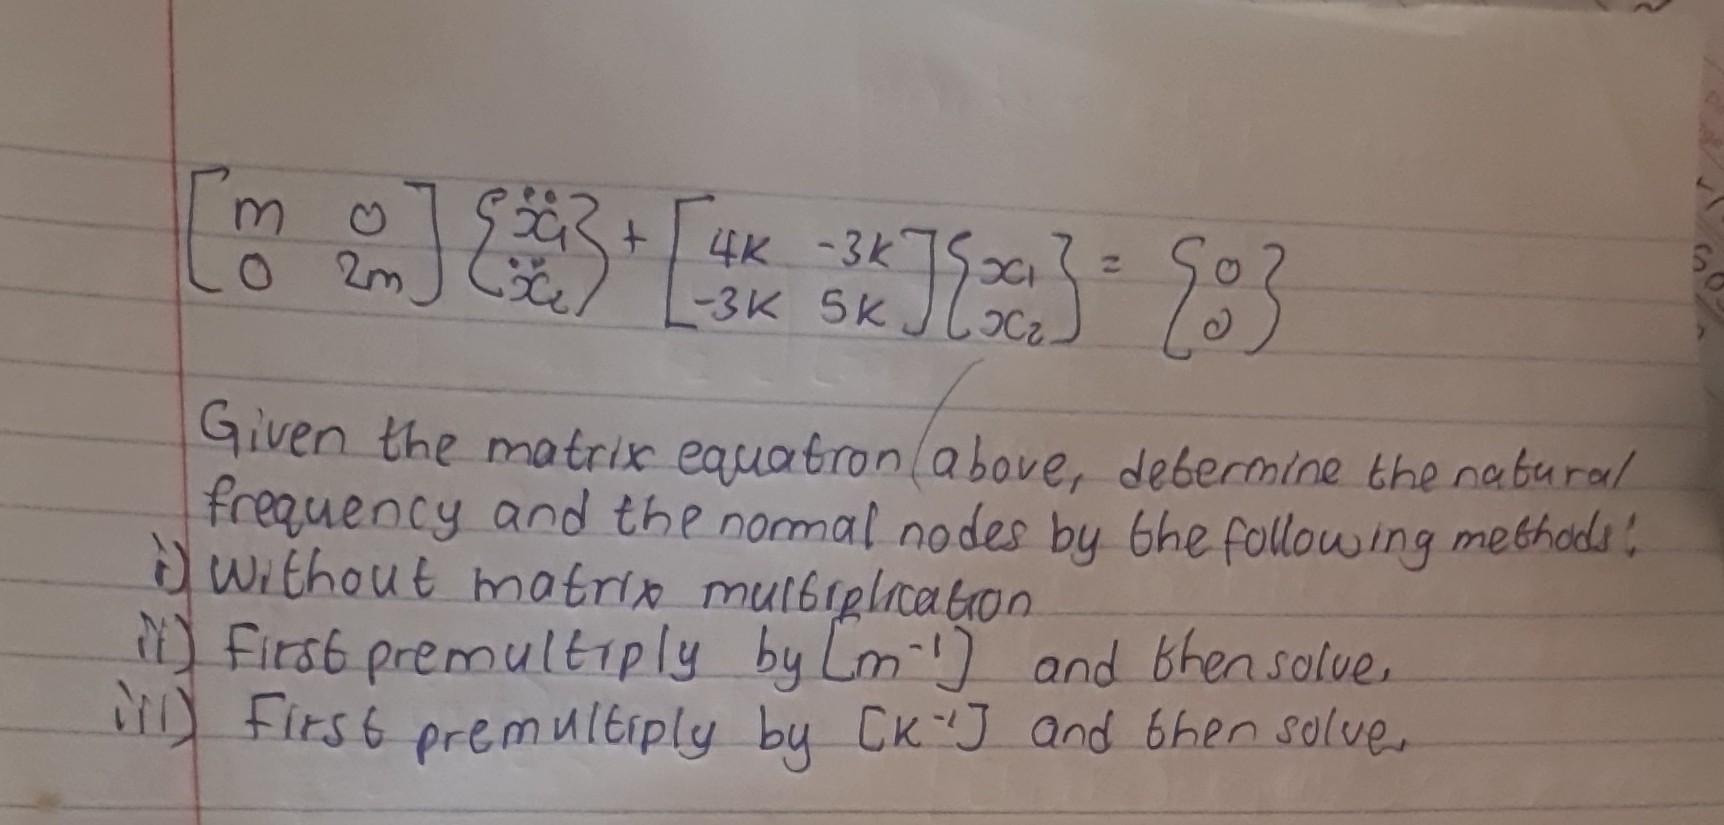 [m 0
0 2m] {ẍ₁
ẍ₂} + [4K -3K
-3K 5K] {x₁
x₂} = {0
0}
Given the matrix equation above, determine the natural
frequency and the normal nodes by the following methods:
i) Without matrix multiplication
ii) First premultiply by [m⁻¹] and then solve.
iii) First premultiply by [K⁻¹] and then solve.